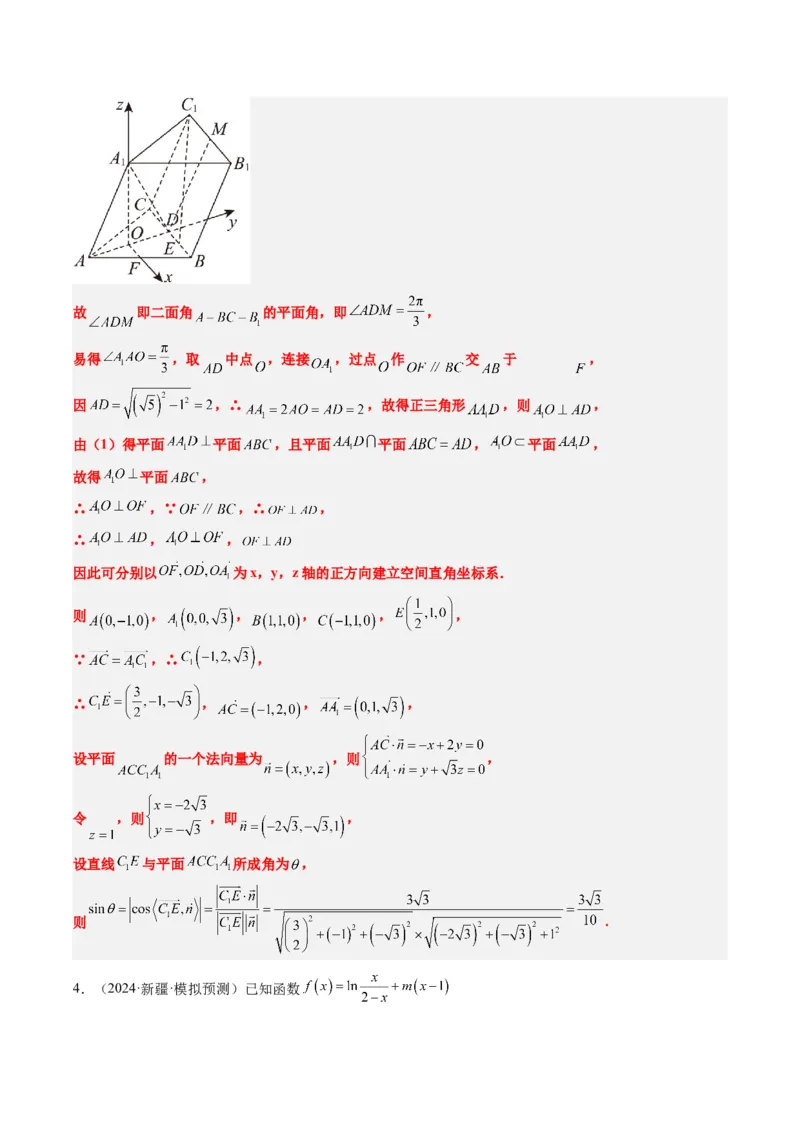 z C₁
M
A₁ B₁
C D y
O E
A F B
x
故 ∠ADM 即二面角 A−BC−B₁ 的平面角，即∠ADM = 2π/3 ，
易得∠A₁AO = π/3 ，取 AD 中点 O ，连接 OA₁ ，过点 O 作 OF // BC 交 AB 于 F ，
因 AD = √((√5)² −1²) = 2 ，∴ AA₁ = 2AO = AD = 2 ，故得正三角形 AA₁D ，则 A₁O ⊥ AD ，
由（1）得平面 AA₁D ⊥ 平面 ABC ，且平面 AA₁D ∩ 平面 ABC = AD ， A₁O ⊂ 平面 AA₁D ，
故得 A₁O ⊥ 平面 ABC ，
∴ A₁O ⊥ OF ，∵ OF // BC ，∴ OF ⊥ AD ，
∴ A₁O ⊥ AD ， A₁O ⊥ OF ， OF ⊥ AD
因此可分别以 OF, OD, OA₁ 为 x，y，z 轴的正方向建立空间直角坐标系．
则 A(0,−1,0) ， A₁(0,0,√3) ， B(1,1,0) ， C(−1,1,0) ， E(1/2,1,0) ，
∵ AC = A₁C₁ ，∴ C₁(−1,2,√3) ，
∴ C₁E = (3/2,−1,−√3) ， AC = (−1,2,0) ， AA₁ = (0,1,√3) ，
设平面 ACC₁A₁ 的一个法向量为 n = (x,y,z) ，则 { AC·n = −x+2y = 0 AA₁·n = y+√3z = 0 ，
令 z=1 ，则 { x = −2√3 y = −√3 ，即 n = (−2√3,−√3,1) ，
设直线 C₁E 与平面 ACC₁A₁ 所成角为 θ ，
则 sinθ = |cos⟨C₁E,n⟩| = |C₁E·n| / |C₁E||n| = 3√3 / (√((3/2)² + (−1)² + (−√3)²) × √((−2√3)² + (−√3)² + 1²)) = 3√3/10 ．
4．（2024·新疆·模拟预测）已知函数 f(x) = ln x/(2−x) + m(x−1)